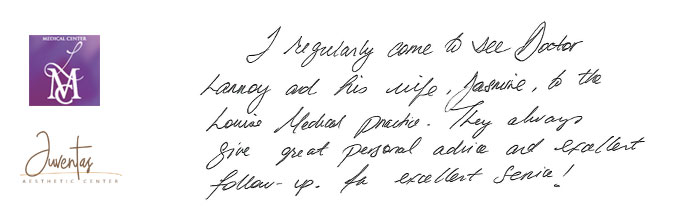 MEDICAL CENTER
LMC
I regularly come to see Doctor
Lannoy and his wife, Jasmine, to the
Louise Medical practice. They always
give great personal advice and excellent
follow-up. An excellent service!
Juventas
AESTHETIC CENTER